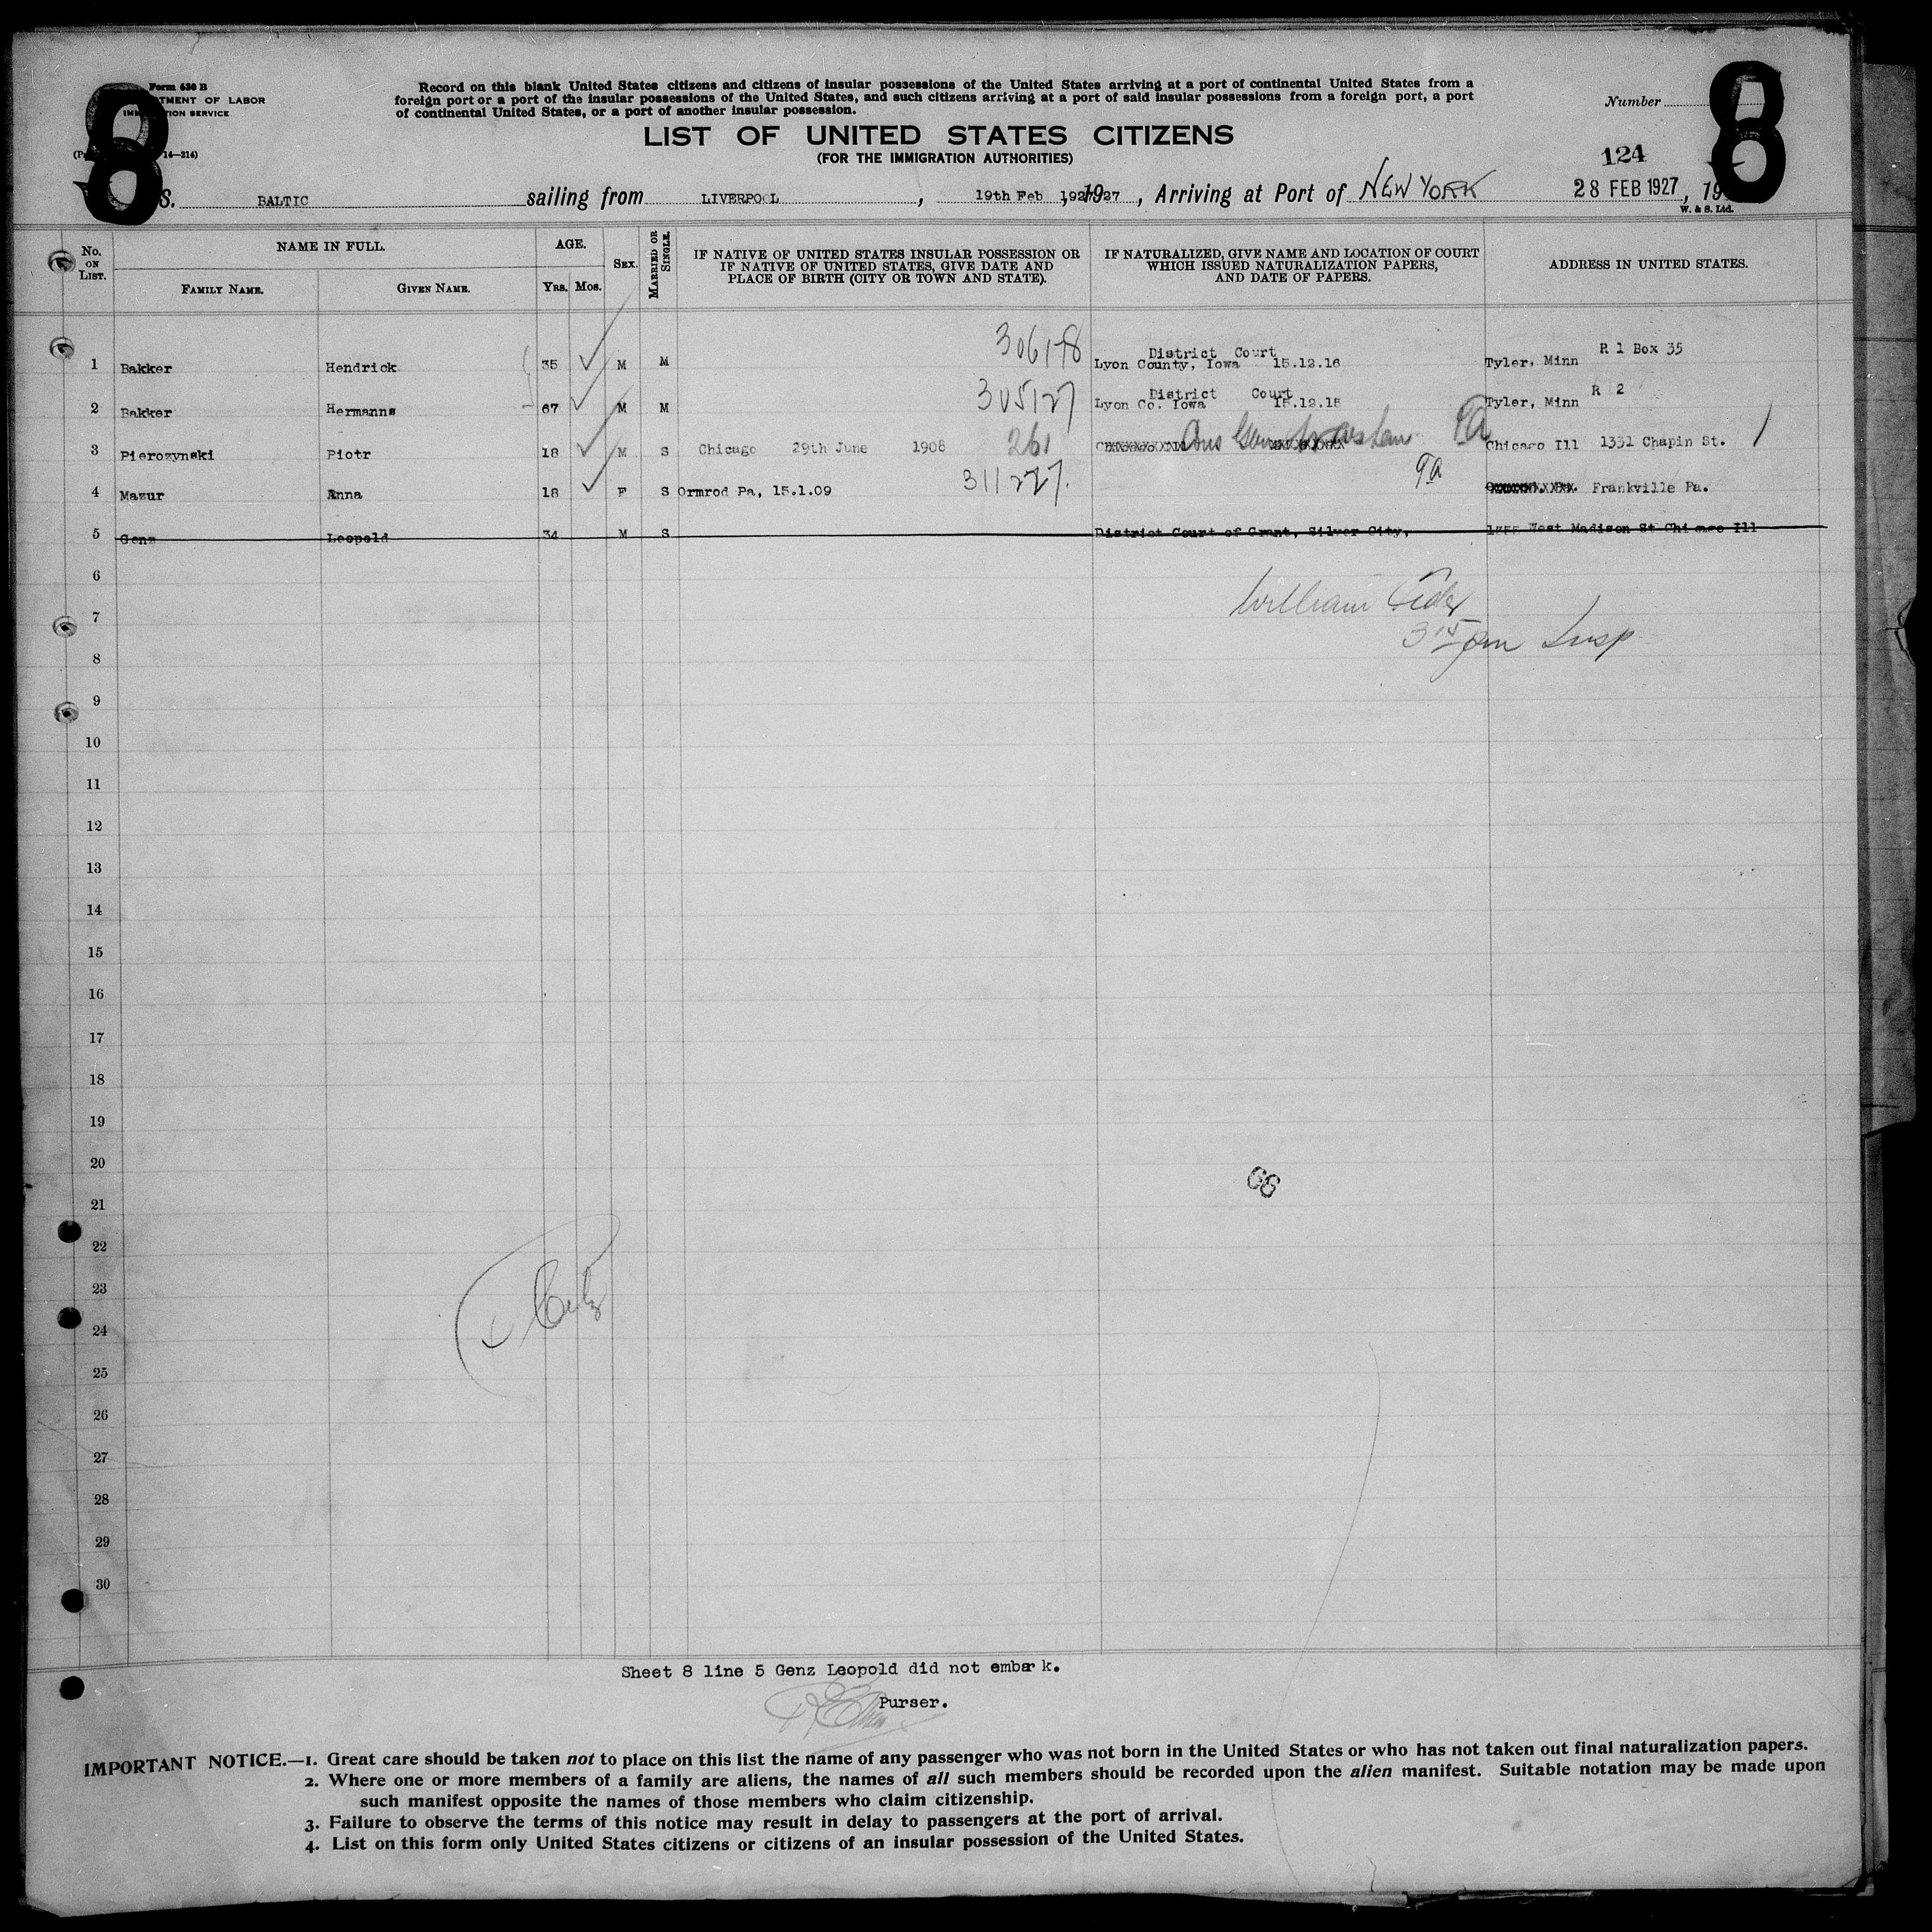 Form 630 B
TMENT OF LABOR
IMM TION SERVICE
14—214)
8
8
Record on this blank United States citizens and citizens of insular possessions of the United States arriving at a port of continental United States from a
foreign port or a port of the insular possessions of the United States, and such citizens arriving at a port of said insular possessions from a foreign port, a port
of continental United States, or a port of another insular possession.
Number
LIST OF UNITED STATES CITIZENS
(FOR THE IMMIGRATION AUTHORITIES)
124
S. BALTIC sailing from LIVERPOOL , 19th Feb 1927 , Arriving at Port of NEW YORK 28 FEB 1927, 19
W. & S. Ltd.
No. ON LIST.
NAME IN FULL.
FAMILY NAME.
GIVEN NAME.
AGE.
YRS. MOS.
SEX.
MARRIED OR SINGLE.
IF NATIVE OF UNITED STATES INSULAR POSSESSION OR
IF NATIVE OF UNITED STATES, GIVE DATE AND
PLACE OF BIRTH (CITY OR TOWN AND STATE).
IF NATURALIZED, GIVE NAME AND LOCATION OF COURT
WHICH ISSUED NATURALIZATION PAPERS,
AND DATE OF PAPERS.
ADDRESS IN UNITED STATES.
1 Bakker Hendrick 35 M M 306178 District Court Lyon County, Iowa 15.12.16 Tyler, Minn R 1 Box 35
2 Bakker Hermanns 67 M M 305127 District Court Lyon Co. Iowa 15.12.15 Tyler, Minn R 2
3 Pierozynski Piotr 18 M S Chicago 29th June 1908 261 Chicago Ill 1331 Chapin St.
4 Mazur Anna 18 F S Ormrod Pa, 15.1.09 311227. Frankville Pa.
5 Genz Leopold 34 M S District Court of Grant, Silver City, West Madison St Chicago Ill
6
William
7
3 15 pm Insp
8
9
10
11
12
13
14
15
16
17
18
19
20
21
22
23
24
25
26
27
28
29
30
Sheet 8 line 5 Genz Leopold did not embark.
Purser.
IMPORTANT NOTICE.—1. Great care should be taken not to place on this list the name of any passenger who was not born in the United States or who has not taken out final naturalization papers.
2. Where one or more members of a family are aliens, the names of all such members should be recorded upon the alien manifest. Suitable notation may be made upon
such manifest opposite the names of those members who claim citizenship.
3. Failure to observe the terms of this notice may result in delay to passengers at the port of arrival.
4. List on this form only United States citizens or citizens of an insular possession of the United States.